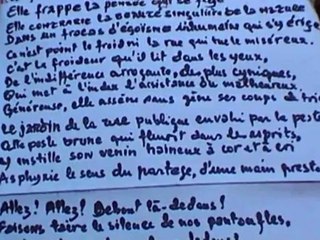 Elle frappe la pensée
Elle contrarie la bonté singulière de la nature
Dans un fracas d'égoïsme inhumain qui s'y érige
Ce n'est point le froid ni la rue qui tue le miséreux.
C'est le froideur qu'il lit dans les yeux,
De l'indifférence arrogante, des plus cyniques,
Qui met à l'index l'assistance du malheureux.
Généreuse, elle assène sans gêne ses coups de tri
Le jardin de la rue publique envahi par la peste
Cette peste brune qui fleurit dans les esprits,
Y instille son venin haineux à cor et à cri
Asphyxie le sens du partage, d'une main presto
Allez! Allez! Debout là-dedans!
Faisons taire le silence de nos pantoufles,